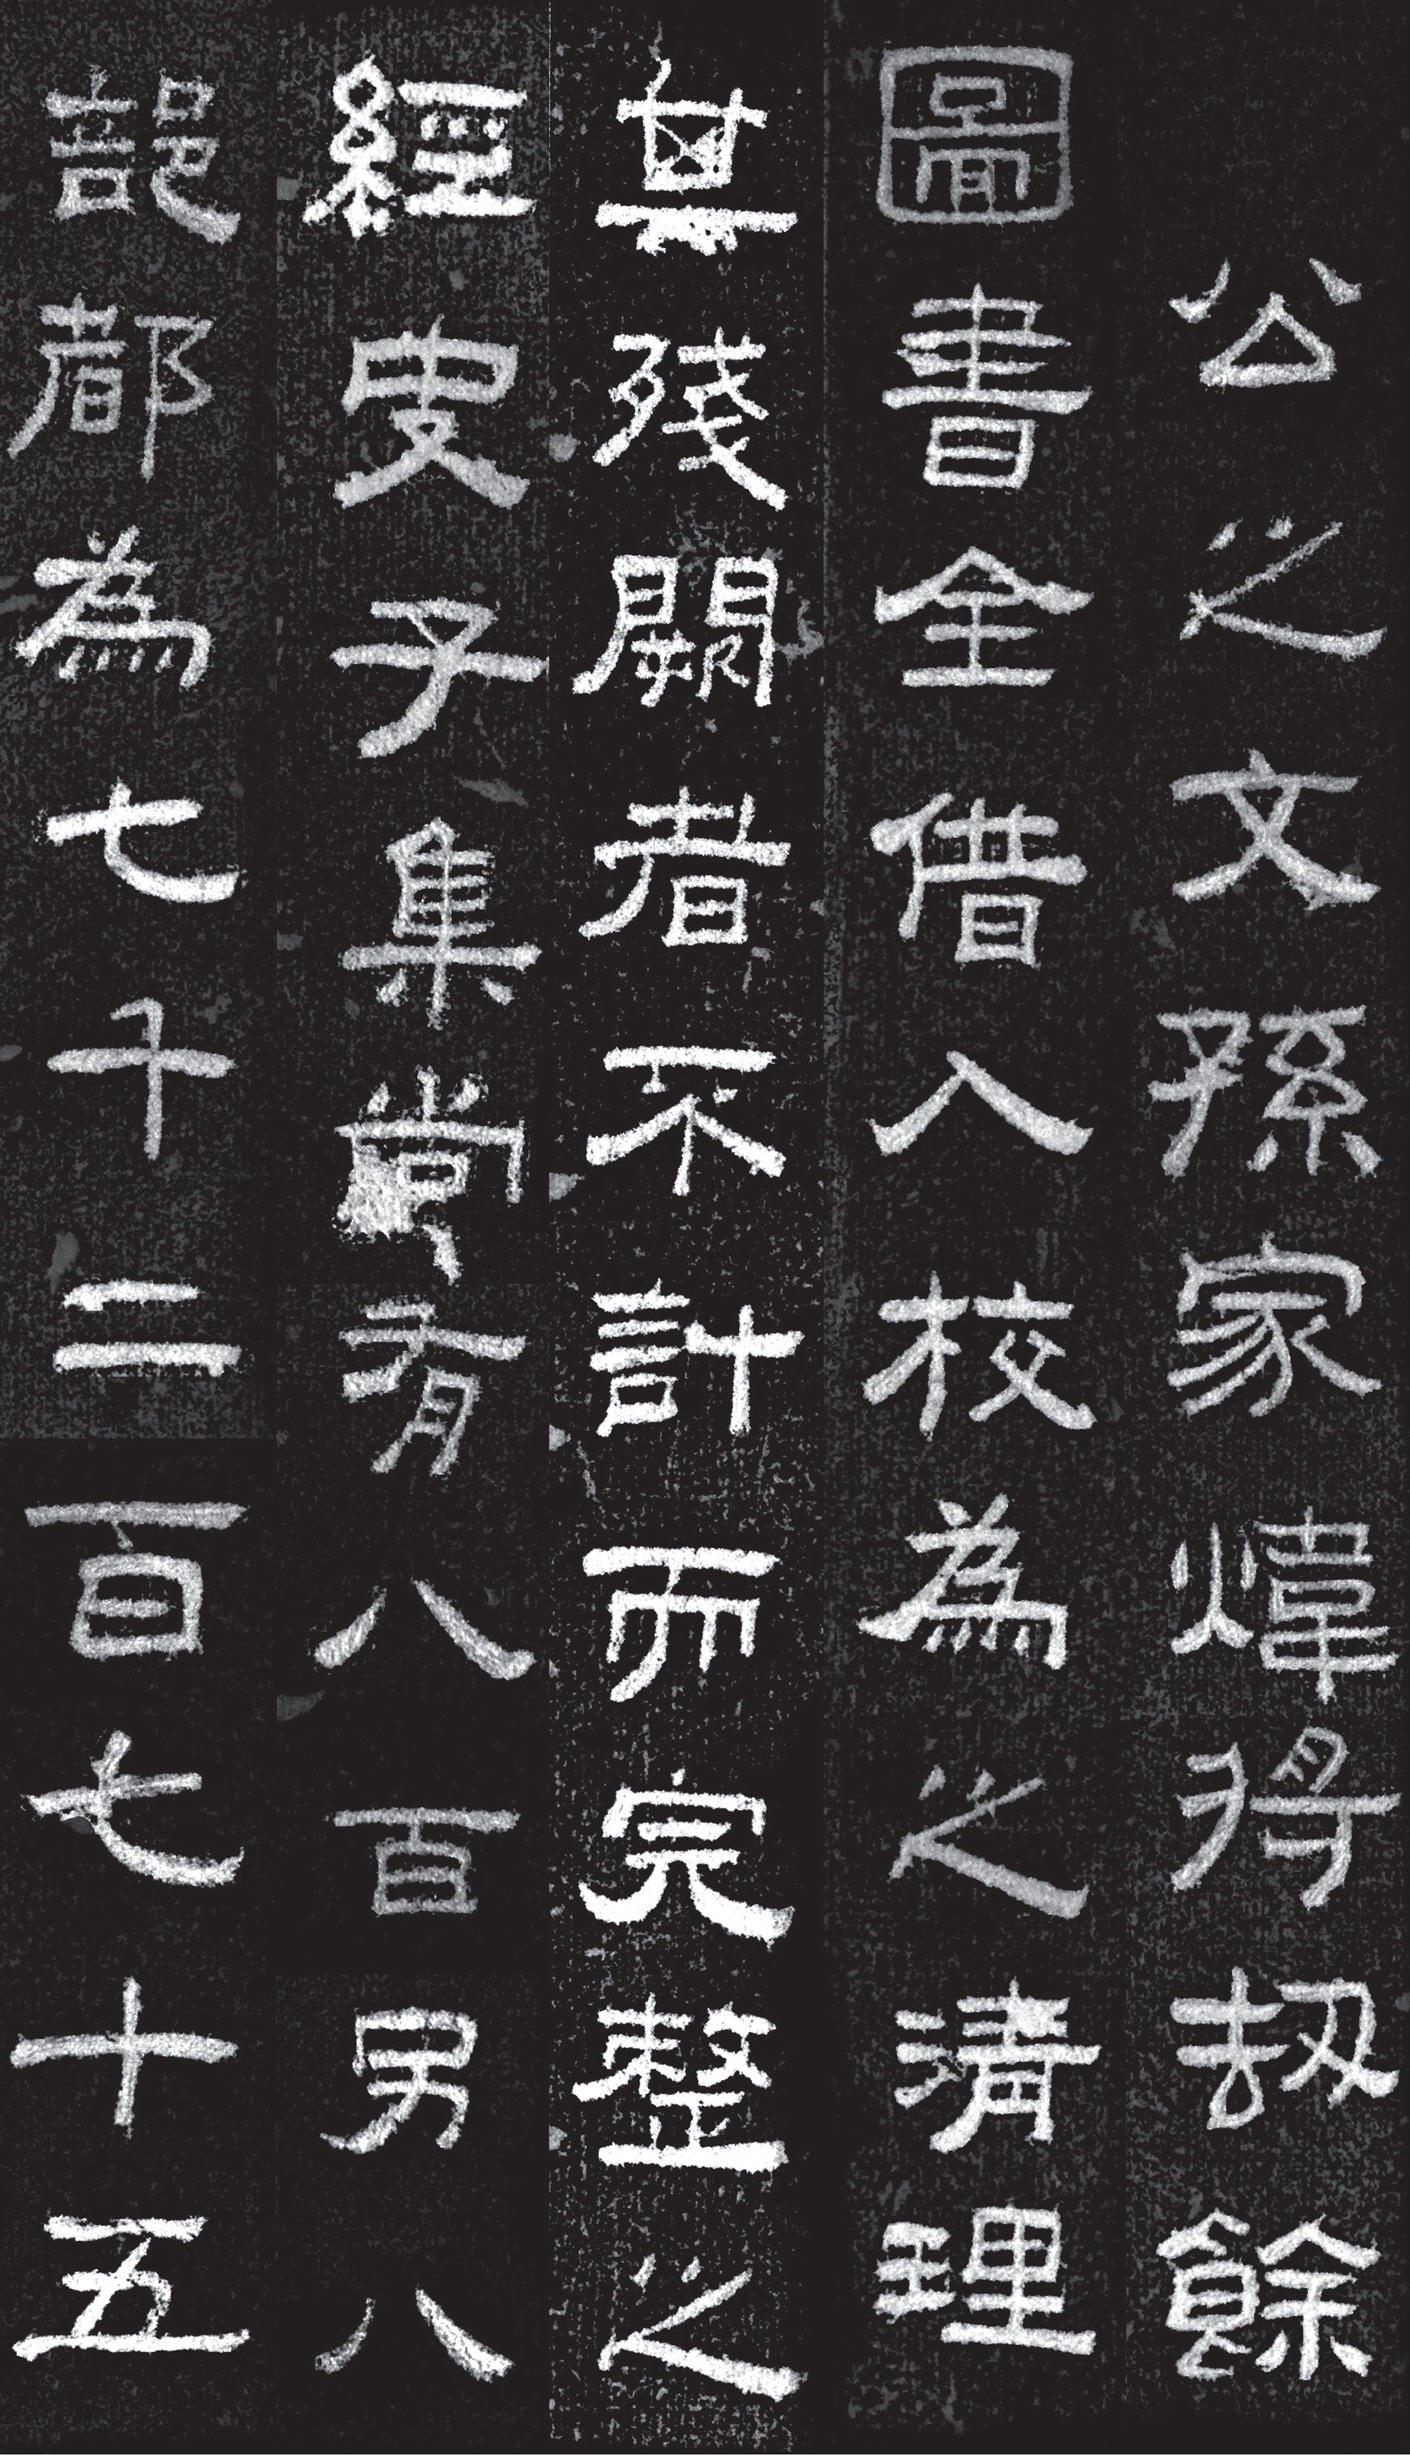 公之文孫家煒得劫餘
圖書全借入校為之清理
其殘闕者不計而完整之
經史子集尚有八百另八
部都為七千二百七十五